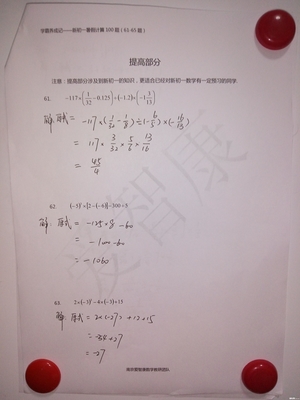 学而思成记——新初一暑假计算100题（61-65题）
提高部分
注意：提高部分涉及到新初一的知识，更适合已经对新初一数学有一定预习的同学
61. -117×(1/32-0.125)÷(-1.2)×(-1 3/13)
解：原式= -117×(1/32-1/8)÷(-6/5)×(-16/13)
= 117×3/32×5/6×13/16
= 45/4
62. (-5)³×[2-(-6)]-300÷5
解：原式= -125×8-60
= -1000-60
= -1060
63. 2×(-3)³-4×(-3)+15
解：原式= 2×(-27)+12+15
= -54+27
= -27
南京爱智康数学教师团队
爱智康